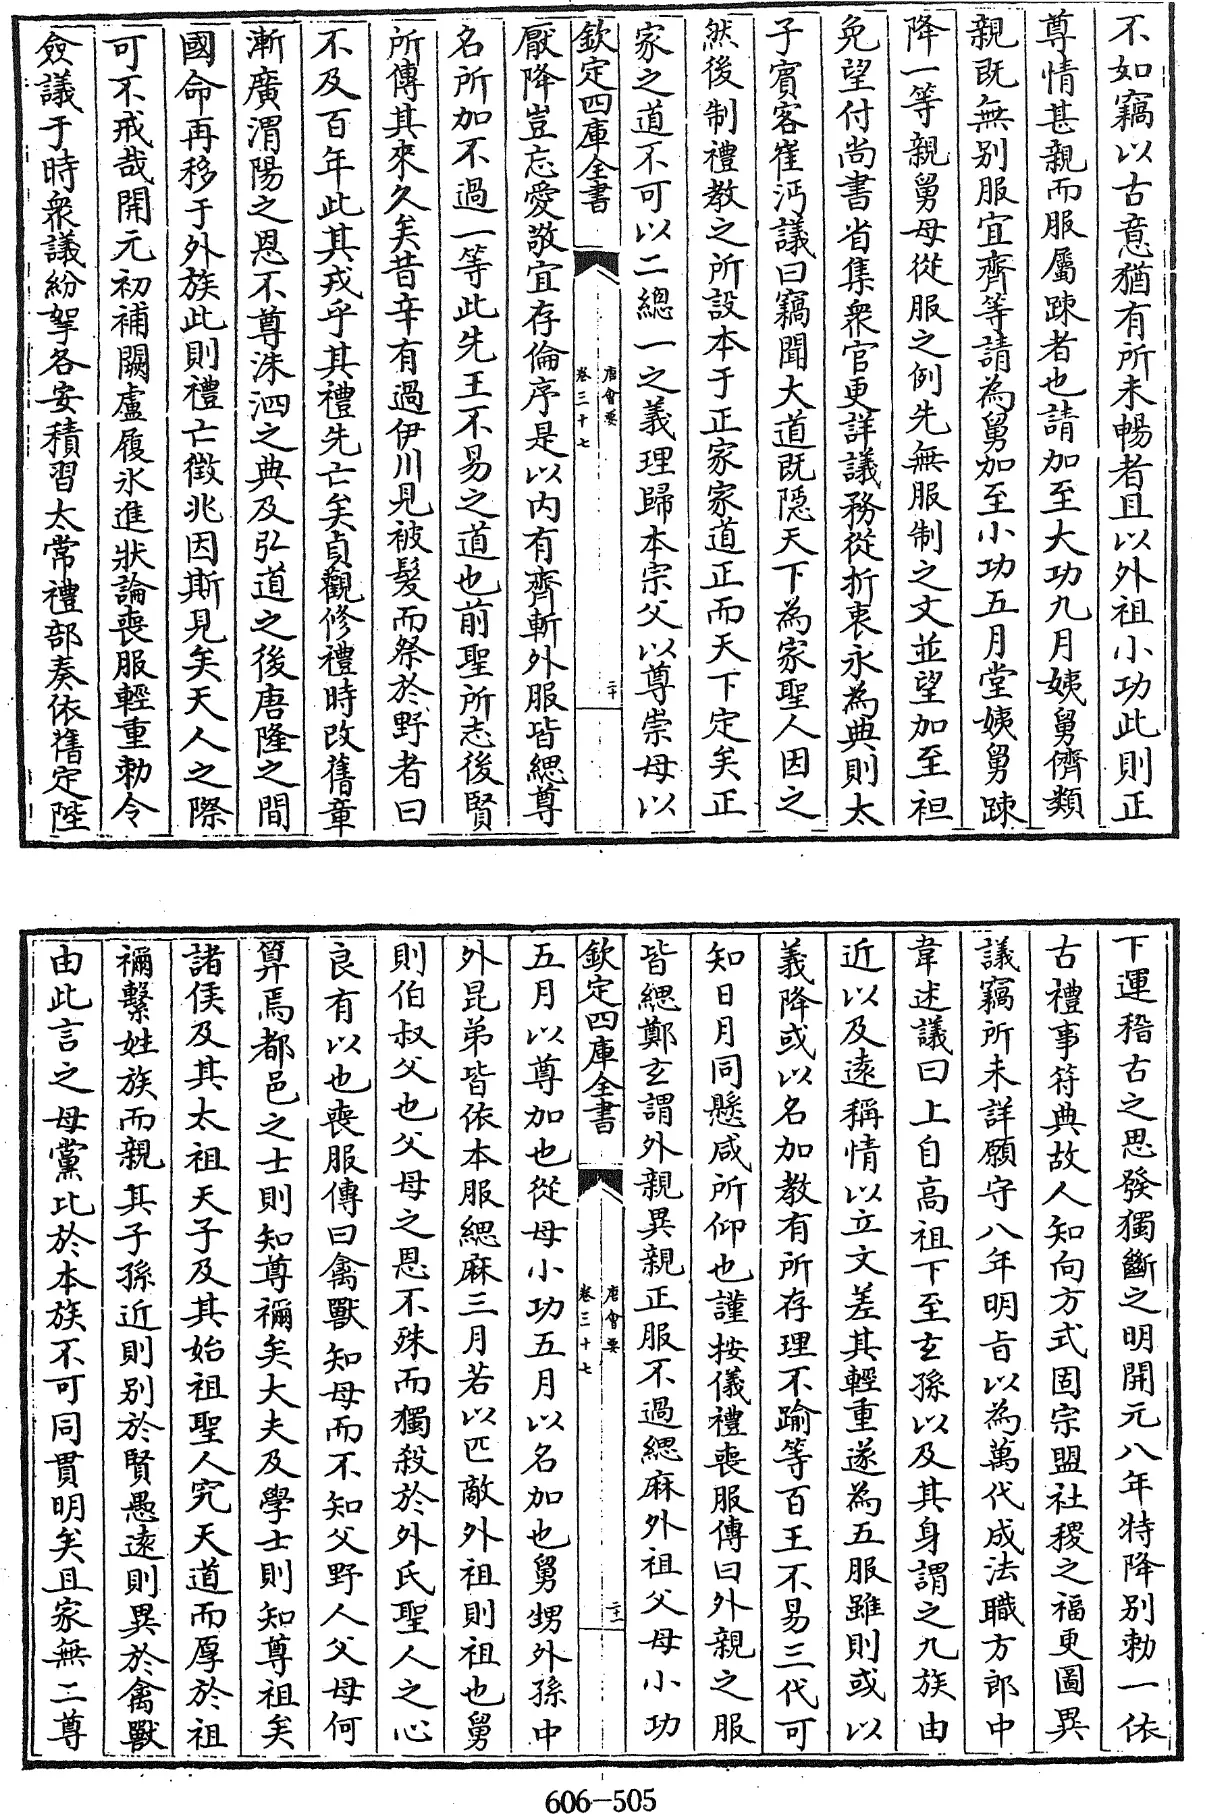 不如竊以古意猶有所未暢者且以外祖小功此則正
尊情甚親而服屬疎者也請加至大功九月姨舅儕類
親既無别服宜齊等請為舅加至小功五月堂姨舅疎
降一等親舅母從服之例先無服制之文並望加至袒
免望付尚書省集衆官更詳議務從折衷永為典則太
子賓客崔沔議曰竊聞大道既隱天下為家聖人因之
然後制禮教之所設本于正家家道正而天下定矣正
家之道不可以二總一之義理歸本宗父以尊崇母以
欽定四庫全書
唐會要
卷三十七
二十
厭降豈忘愛敬宜存倫序是以内有齊斬外服皆緦尊
名所加不過一等此先王不易之道也前聖所志後賢
所傳其來久矣昔辛有過伊川見被髮而祭於野者曰
不及百年此其戎乎其禮先亡矣貞觀修禮時改舊章
漸廣渭陽之恩不尊洙泗之典及弘道之後唐隆之間
國命再移于外族此則禮亡徵兆因斯見矣天人之際
可不戒哉開元初補闕盧履氷進狀論喪服輕重勅令
僉議于時衆議紛挐各安積習太常禮部奏依舊定陛
下運稽古之思發獨斷之明開元八年特降别勅一依
古禮事符典故人知向方式固宗盟社稷之福更圖異
議竊所未詳願守八年明旨以為萬代成法職方郎中
韋述議曰上自高祖下至玄孫以及其身謂之九族由
近以及遠稱情以立文差其輕重遂為五服雖則或以
義降或以名加教有所存理不踰等百王不易三代可
知日月同懸咸所仰也謹按儀禮喪服傳曰外親之服
皆緦鄭玄謂外親異親正服不過緦麻外祖父母小功
欽定四庫全書
唐會要
卷三十七
二十一
五月以尊加也從母小功五月以名加也舅甥外孫中
外昆弟皆依本服緦麻三月若以匹敵外祖則祖也舅
則伯叔父也父母之恩不殊而獨殺於外氏聖人之心
良有以也喪服傳曰禽獸知母而不知父野人父母何
算焉都邑之士則知尊禰矣大夫及學士則知尊祖矣
諸侯及其太祖天子及其始祖聖人究天道而厚於祖
禰繫姓族而親其子孫近則别於賢愚遠則異於禽獸
由此言之母黨比於本族不可同貫明矣且家無二尊
606-505